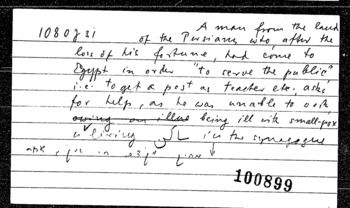 1080 J 31
A man from the land
of the Persians who after the
loss of his fortune, had come to
Egypt in order "to serve the public"
i.e. to get a post as teacher etc. asks
for help, as he was unable to work,
being ill with small-pox
a living in the synagogue
100899